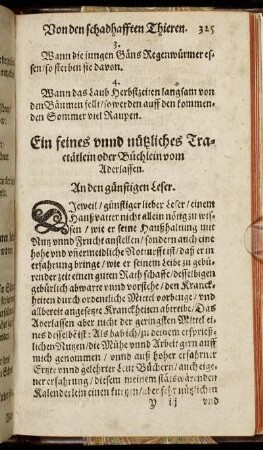 Von den schadhafften Thieren. 325
3.
Wann die jungen Gäns Regenwürmer es-
sen/ so sterben sie davon.
4.
Wann das Laub Herbstzeiten langsam von
den Bäumen fellt/ so werden auff den kommen-
den Sommer viel Raupen.
Ein feines vnnd nützliches Tra-
ctätlein oder Büchlein vom
Aderlassen.
An den günstigen Leser.
DJeweil/ günstiger lieber Leser/ einem
Haußvatter nicht allein nötig zu wis-
sen/ wie er seine Haußhaltung mit
Nutz vnnd Frucht anstellen/ sondern auch eine
hohe vnd vnermeidliche Notturfft ist/ daß er in
erfahrung bringe/ wie er seinem Leibe zu gebü-
render zeit einen guten Rath schaffe/ desselbigen
gebürlich abwarte vnnd vorstehe/ den Kranck-
heiten durch ordentliche Mittel vorbeuge/ vnd
allbereit angesetzte Kranckheiten abtreibe/ Das
Aderlassen aber nicht der geringsten Mittel ei-
nes desselbē ist: Als hab ich/ zu deinem ersprieß-
lichen Nutzen/ die Mühe vnnd Arbeit gern auff
mich genommen/ vnnd auß hoher erfahrner
Ertzte vnnd gelehrter Leut Büchern/ auch eige-
ner erfahrung/ diesem meinem stäts wärenden
Kalenderlein einen kurtzen/ aber sehr nützlichen
Y ij vnd